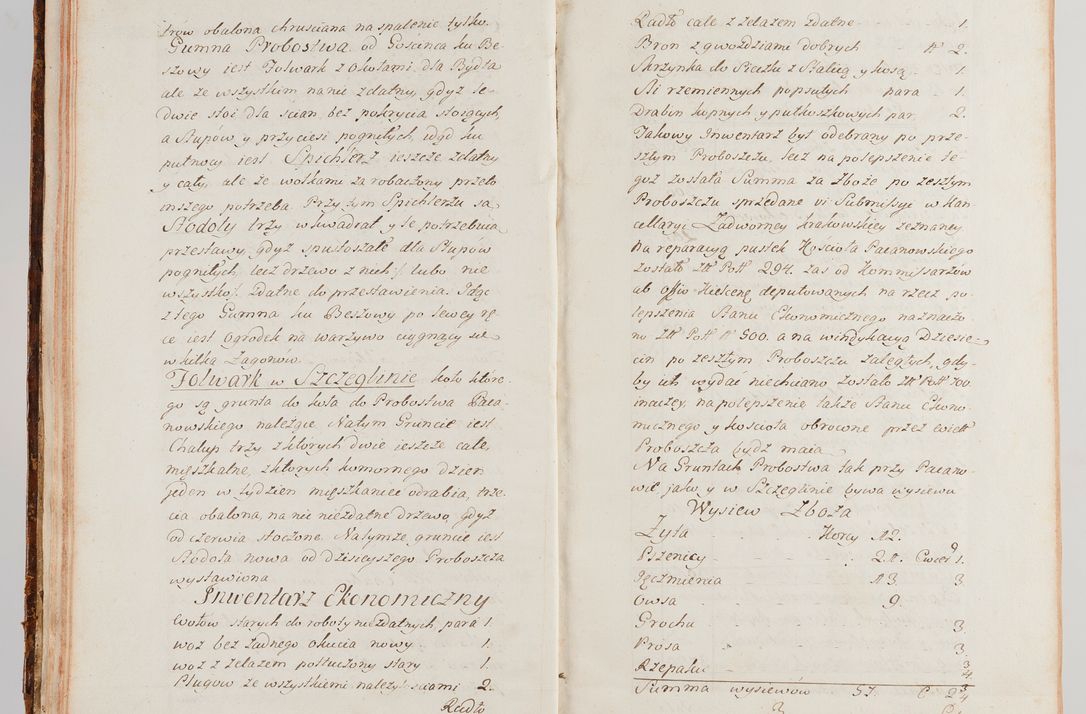 trów obalona chruściana na spalenie tylko.
Gumna Probostwa od Goscinca ku Be-
szowy iest Folwark z Okołami dla Bydła
ale ze wszystkim na nic zdatny, gdyż le-
dwie stoi dla scian, bez pokrycia stoiących
a Słupów y przyciesi pognitych, idąc ku
pułnocy iest Spichlerz ieszcze zdatny
y cały, ale ze wołkami za robaczony przeto
onszego potrzeba. Przy tym Spichlerzu są
Stodoły trzy w kwadrat y te potrzebuią
przestawy, gdyż spustoszałe dla Słupów
pognitych, lecz drzewo z nich /: lubo nie
wszystko :/ zdatne do przestawienia. Idąc
z tego Gumna ku Beszowy po lewey rę-
ce iest ogrodek na warzywo ciągnący się
w kilka Zagonow.
Folwark w Szczeglinie koło które-
go są grunta do koła do Probostwa Paca-
nowskiego należące. Na tym Gruncie iest
Chałup trzy z których dwie ieszcze całe,
mięszkalne, z których komornego dzien
jeden w tydzien mięszkaniec odrabia, trze-
cia obalona, na nic niezdatne drzewo, gdyż
od czerwia stoczone. Na tymże gruncie iest
Stodoła nowa od dzisieyszego Proboszcza
wystawiona
Inwentarz Ekonomiczny
Wołów starych do roboty niezdatnych para 1.
woz bez żadnego okucia nowy 1.
woz z żelazem potłuczony stary 1.
Pługow ze wszystkiemi należytosciami 2.
Radło
Radło całe z żelazem zdatne 1.
Bron z gwoździami dobrych 2.
Skrzynka do Sieczki z Stalicą y kosą 1.
Sli rzemiennych popsutych para 1.
Drabin kupnych y pułkoszkowych par 2.
Takowy Inwentarz był odebrany po prze-
szłym Proboszczu, lecz na polepszenie te-
goż została Summa za Zboże po zeszłym
Proboszczu sprzedane vi Submissyi w Kan-
cellaryi Zadworney krakowskiey zeznaney
na reparacyą pustek Kościoła Pacanowskiego
zostało Zł Poll 294. zas od Kommissarzów
ab offio Kielcen: deputowanych na rzecz po-
lepszenia Stanu Ekonomicznego naznaczo-
no Zł Poll 500. a na windykacyą Dziesie-
cin po zeszłym Proboszczu zaległych, gdy-
by ich wydać niechciano zostało Zł Poll 700.
inaczey na polepszenie także Stanu Ekono-
micznego y kościoła obrocone przez
Proboszcza bydź maią
Na Gruntach Probostwa tak przy Pacano-
wie jako y w Szczeglinie bywa wysiewu
Wysiew Zboża
Żyta Korcy 12.
Pszenicy 21. Cwier 1.
Jęczmienia 13. 3.
Owsa 9.
Grochu 3.
Prosa 3.
Rzepaku 3/4
Summa wysiewów 57. C 2 3/4